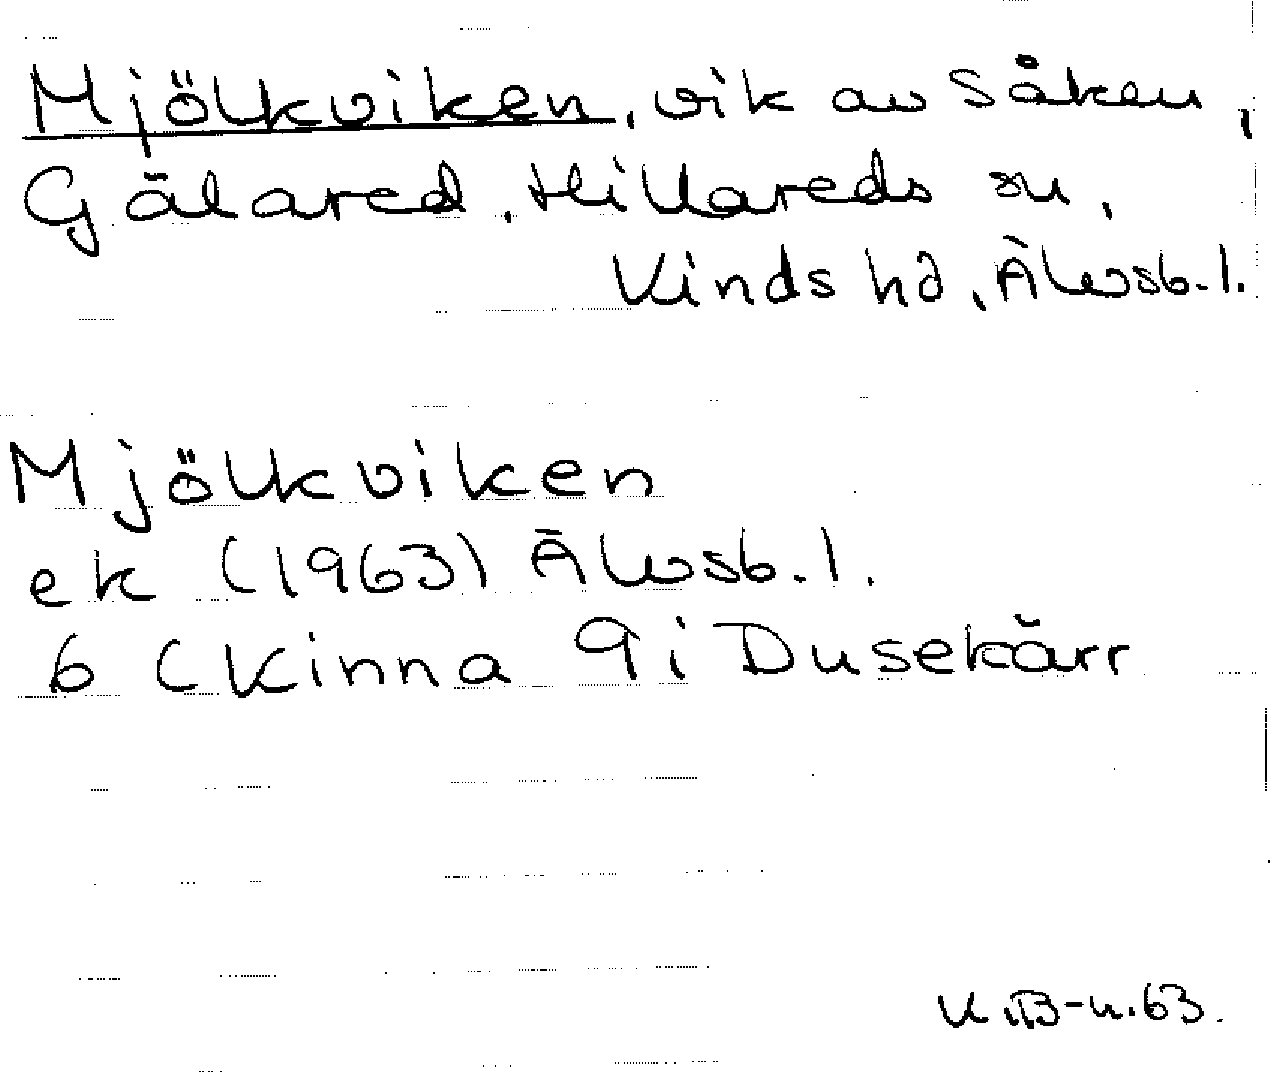 Mjölkviken, vik av Såken,
Gälared, Hillareds sn,
Kinds hd, Älvsb. l.
Mjölkviken
ek (1963) Älvsb. l.
6 (Kinna 9i Dusekärr
K.B-n. 63.